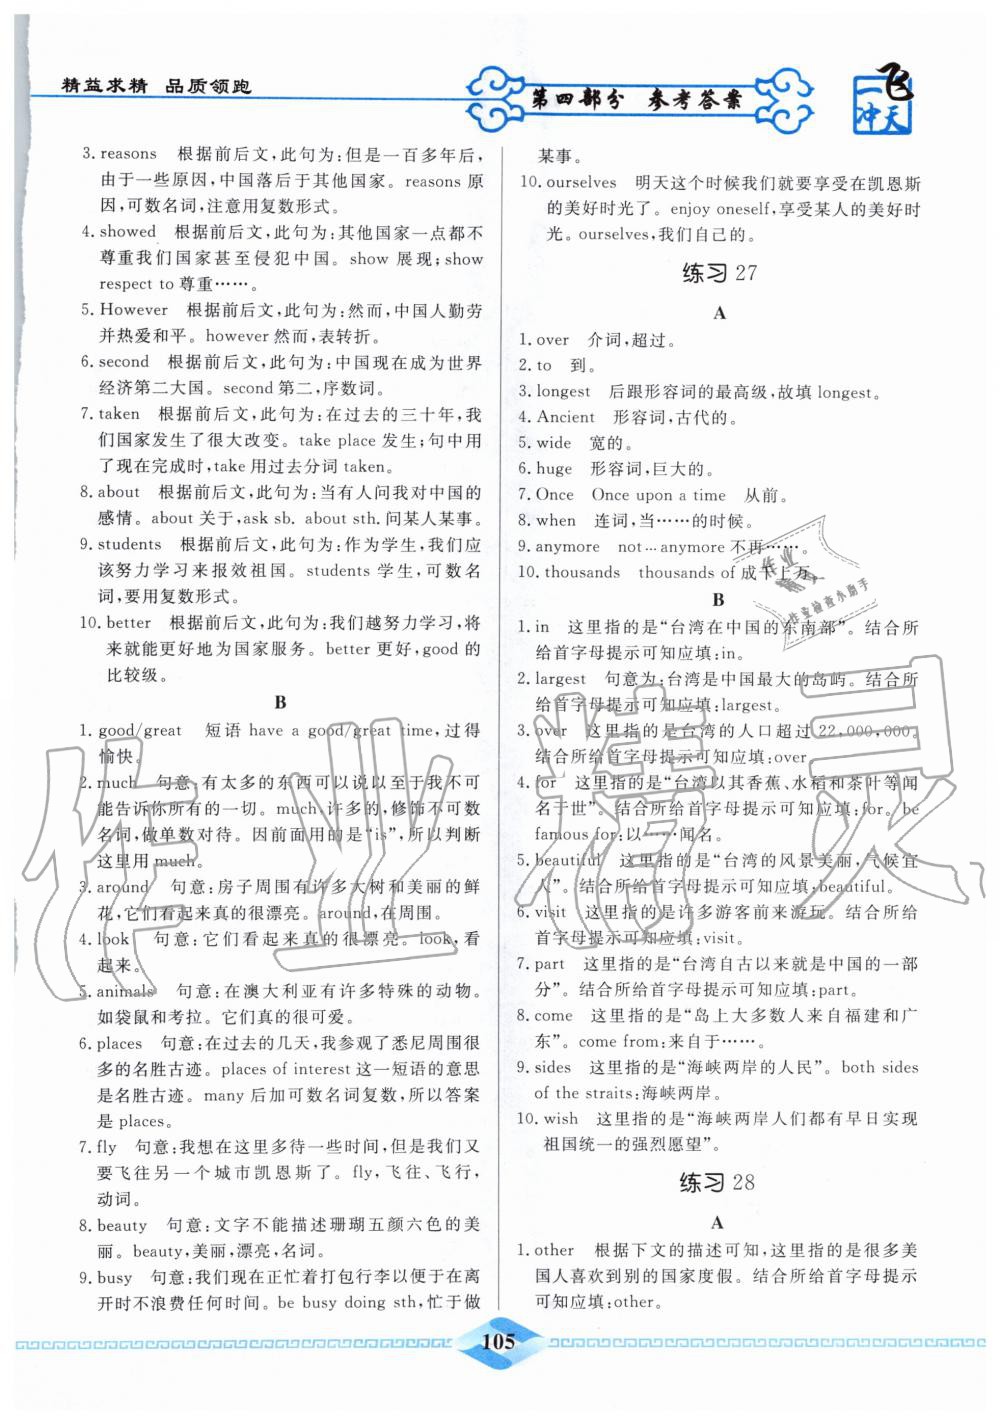 精益求精 品质领跑
第四部分 参考答案
飞
一
冲天
3. reasons 根据前后文,此句为:但是一百多年后,
由于一些原因,中国落后于其他国家。reasons 原
因,可数名词,注意用复数形式。
4. showed 根据前后文,此句为:其他国家一点都不
尊重我们国家甚至侵犯中国。show 展现;show
respect to 尊重……。
5. However 根据前后文,此句为:然而,中国人勤劳
并热爱和平。however 然而,表转折。
6. second 根据前后文,此句为:中国现在成为世界
经济第二大国。second 第二,序数词。
7. taken 根据前后文,此句为:在过去的三十年,我
们国家发生了很大改变。take place 发生;句中用
了现在完成时,take 用过去分词 taken。
8. about 根据前后文,此句为:当有人问我对中国的
感情。about 关于,ask sb. about sth. 问某人某事。
9. students 根据前后文,此句为:作为学生,我们应
该努力学习来报效祖国。students 学生,可数名
词,要用复数形式。
10. better 根据前后文,此句为:我们越努力学习,将
来就能更好地为国家服务。better 更好,good 的
比较级。
B
1. good/great 短语 have a good/great time,过得
愉快。
2. much 句意:有太多的东西可以说以至于我不可
能告诉你所有的一切。much 许多的,修饰不可数
名词,做单数对待。因前面用的是“is”,所以判断
这里用 much。
3. around 句意:房子周围有许多大树和美丽的鲜
花,它们看起来真的很漂亮。around,在周围。
4. look 句意:它们看起来真的很漂亮。look,看
起来。
5. animals 句意:在澳大利亚有许多特殊的动物。
如袋鼠和考拉。它们真的很可爱。
6. places 句意:在过去的几天,我参观了悉尼周围很
多的名胜古迹。places of interest 这一短语的意思
是名胜古迹。many 后加可数名词复数,所以答案
是 places。
7. fly 句意:我想在这里多待一些时间,但是我们又
要飞往另一个城市凯恩斯了。fly,飞往、飞行,
动词。
8. beauty 句意:文字不能描述珊瑚五颜六色的美
丽。beauty,美丽,漂亮,名词。
9. busy 句意:我们现在正忙着打包行李以便在离
开时不浪费任何时间。be busy doing sth,忙于做
某事。
10. ourselves 明天这个时候我们就要享受在凯恩斯
的美好时光了。enjoy oneself,享受某人的美好时
光。ourselves,我们自己的。
练习 27
A
1. over 介词,超过。
2. to 到。
3. longest 后跟形容词的最高级,故填 longest。
4. Ancient 形容词,古代的。
5. wide 宽的。
6. huge 形容词,巨大的。
7. Once Once upon a time 从前。
8. when 连词,当……的时候。
9. anymore not…anymore 不再……。
10. thousands thousands of 成千上万。
B
1. in 这里指的是“台湾在中国的东南部”。结合所
给首字母提示可知应填:in。
2. largest 句意为:台湾是中国最大的岛屿。结合所
给首字母提示可知应填:largest。
3. over 这里指的是台湾的人口超过 22,000,000。
结合所给首字母提示可知应填:over。
4. for 这里指的是“台湾以其香蕉、水稻和茶叶等闻
名于世”。结合所给首字母提示可知应填:for。be
famous for:以……闻名。
5. beautiful 这里指的是“台湾的风景美丽,气候宜
人”。结合所给首字母提示可知应填:beautiful。
6. visit 这里指的是许多游客前来游玩。结合所给
首字母提示可知应填:visit。
7. part 这里指的是“台湾自古以来就是中国的一部
分”。结合所给首字母提示可知应填:part。
8. come 这里指的是“岛上大多数人来自福建和广
东”。come from:来自于……。
9. sides 这里指的是“海峡两岸的人民”。both sides
of the straits:海峡两岸。
10. wish 这里指的是“海峡两岸人们都有早日实现
祖国统一的强烈愿望”。
练习 28
A
1. other 根据下文的描述可知,这里指的是很多美
国人喜欢到别的国家度假。结合所给首字母提示
可知应填:other。
105
作业精灵
作业
精灵
作业检查小助手